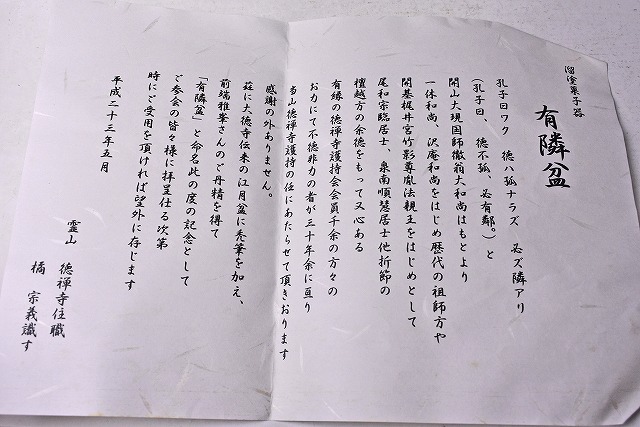 溜塗菓子器
有隣盆
孔子曰ワク　徳ハ孤ナラズ　必ズ隣アリ
(孔子曰、徳不孤、必有鄰。)と
開山大現国師徹翁大和尚はもとより
一休和尚、沢庵和尚をはじめ歴代の祖師方や
開基梶井宮竹影尊胤法親王をはじめとして
尾和宗臨居士、泉南順慧居士他折節の
檀越方の余徳をもって又心ある
有縁の徳禅寺護持会会員千余の方々の
お力にて不徳非力の者が三十年余に亘り
当山徳禅寺護持の任にあたらせて頂きおります
感謝の外ありません。
茲に大徳寺伝来の江月盆に禿筆を加え、
前端雅峯さんのご丹精を得て
「有隣盆」と命名此の度の記念として
ご参会の皆々様に拝呈仕る次第
時にご受用を頂ければ望外に存じます
平成二十三年五月
霊山　徳禅寺住職
橘　宗義識す